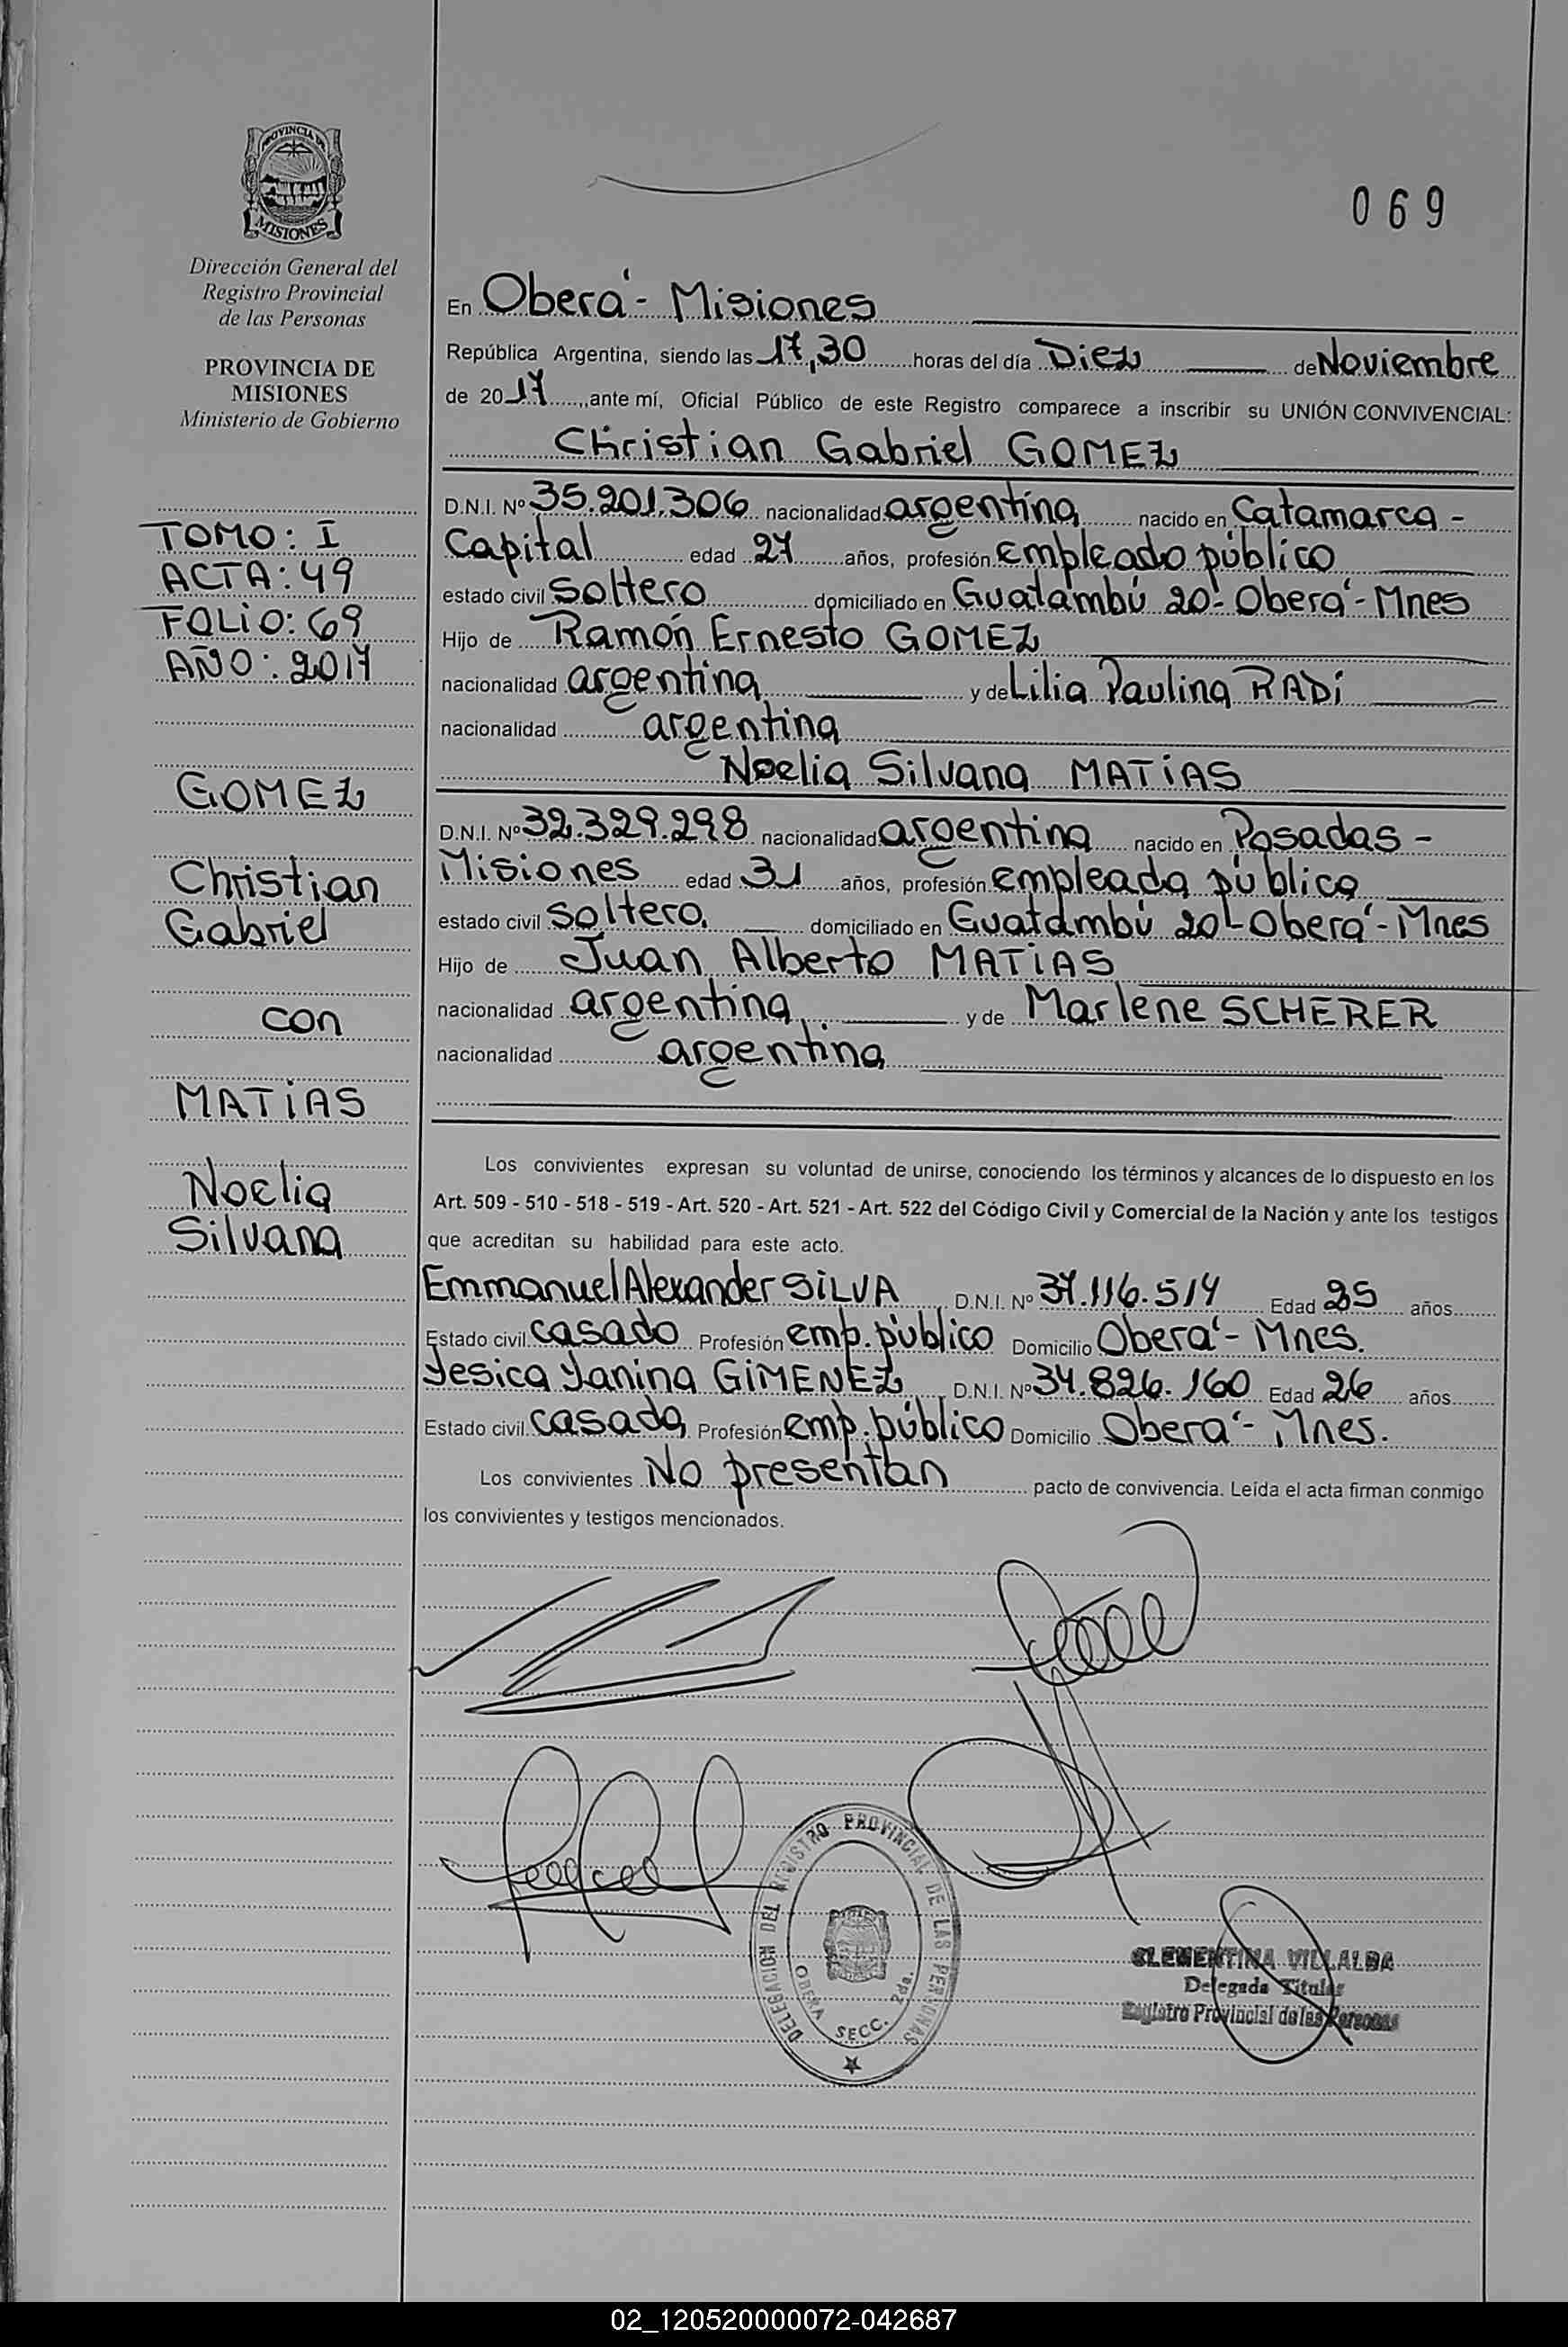 PROVINCIA DE
MISIONES
Dirección General del
Registro Provincial
de las Personas
PROVINCIA DE
MISIONES
Ministerio de Gobierno
TOMO: I
ACTA: 49
FOLIO: 69
AÑO: 2017
GOMEZ
Christian
Gabriel
con
MATIAS
Noelia
Silvana
069
En Oberá - Misiones
República Argentina, siendo las 17,30 horas del día Diez de Noviembre
de 2017, ante mí, Oficial Público de este Registro comparece a inscribir su UNIÓN CONVIVENCIAL:
Christian Gabriel GOMEZ
D.N.I. Nº 35.201.306 nacionalidad argentina nacido en Catamarca -
Capital edad 27 años, profesión empleado público
estado civil soltero domiciliado en Guatambú 20 - Oberá - Mnes
Hijo de Ramón Ernesto GOMEZ
nacionalidad argentina y de Lilia Paulina RADI
nacionalidad argentina
Noelia Silvana MATIAS
D.N.I. Nº 32.329.298 nacionalidad argentina nacido en Posadas -
Misiones edad 31 años, profesión empleada pública
estado civil soltera domiciliado en Guatambú 20 - Oberá - Mnes
Hijo de Juan Alberto MATIAS
nacionalidad argentina y de Marlene SCHERER
nacionalidad argentina
Los convivientes expresan su voluntad de unirse, conociendo los términos y alcances de lo dispuesto en los
Art. 509 - 510 - 518 - 519 - Art. 520 - Art. 521 - Art. 522 del Código Civil y Comercial de la Nación y ante los testigos
que acreditan su habilidad para este acto.
Emmanuel Alexander SILVA D.N.I. Nº 37.116.514 Edad 25 años
Estado civil casado Profesión emp. público Domicilio Oberá - Mnes.
Yesica Yanina GIMENEZ D.N.I. Nº 34.826.160 Edad 26 años
Estado civil casada Profesión emp. público Domicilio Oberá - Mnes.
Los convivientes No presentan pacto de convivencia. Leída el acta firman conmigo
los convivientes y testigos mencionados.
DELEGACION DEL REGISTRO PROVINCIAL DE LAS PERSONAS
OBERA SECC. 2da.
CLEMENTINA VILLALBA
Delegada Titular
Registro Provincial de las Personas
02_120520000072-042687